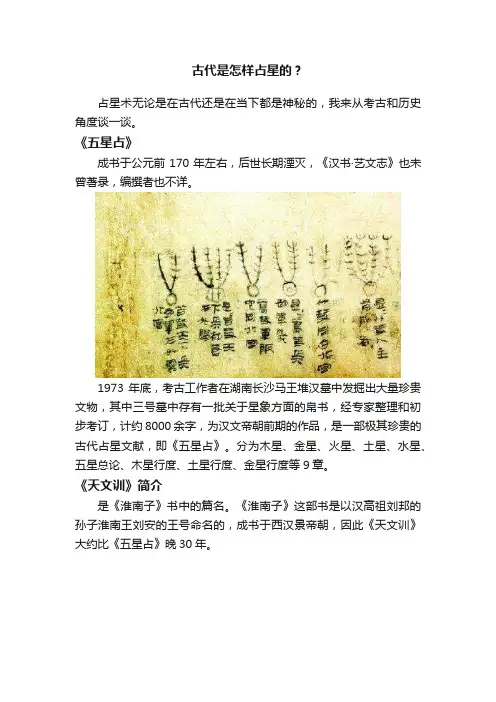 古代是怎样占星的？
占星术无论是在古代还是在当下都是神秘的，我来从考古和历史
角度谈一谈。
《五星占》
成书于公元前170年左右，后世长期湮灭，《汉书·艺文志》也未
曾著录，编撰者也不详。
1973年底，考古工作者在湖南长沙马王堆汉墓中发掘出大量珍贵
文物，其中三号墓中存有一批关于星象方面的帛书，经专家整理和初
步考订，计约8000余字，为汉文帝朝前期的作品，是一部极其珍贵的
古代占星文献，即《五星占》。分为木星、金星、火星、土星、水星、
五星总论、木星行度、土星行度、金星行度等9章。
《天文训》简介
是《淮南子》书中的篇名。《淮南子》这部书是以汉高祖刘邦的
孙子淮南王刘安的王号命名的，成书于西汉景帝朝，因此《天文训》
大约比《五星占》晚30年。